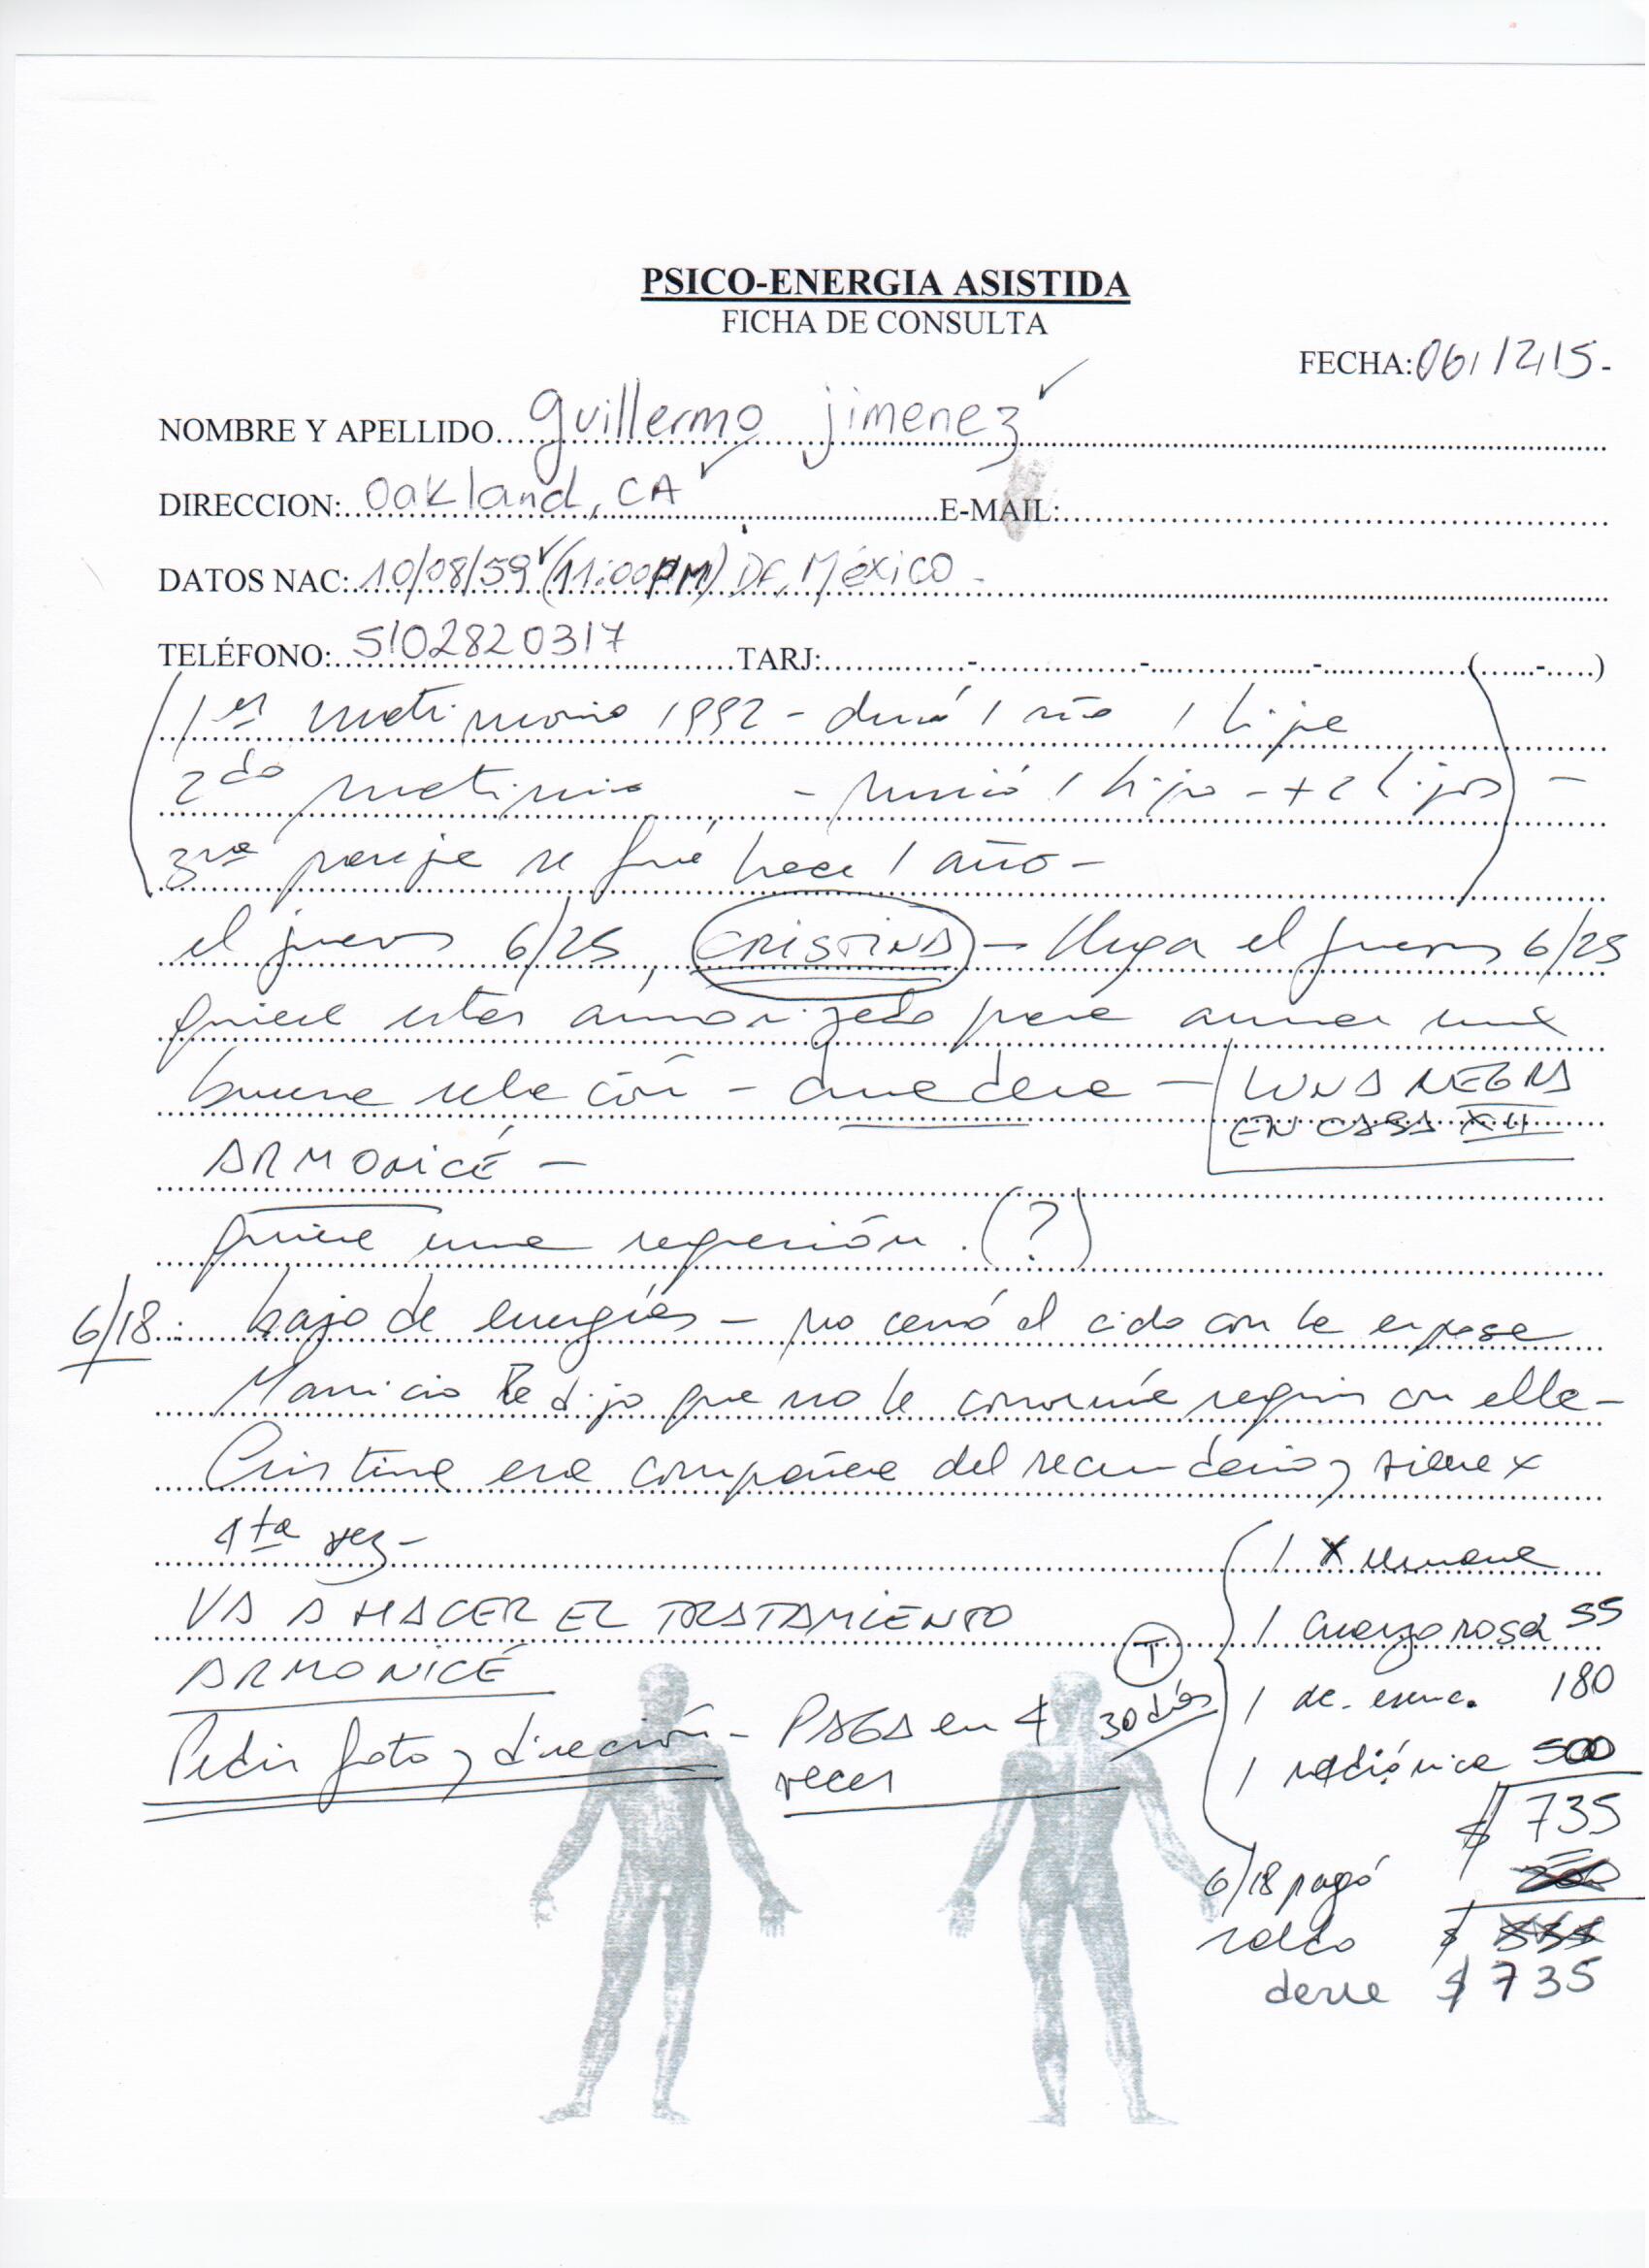 PSICO-ENERGIA ASISTIDA
FICHA DE CONSULTA
FECHA: 06/12/15.-
NOMBRE Y APELLIDO guillermo jimenez
DIRECCION: Oakland, CA E-MAIL:
DATOS NAC: 10/08/59 (11:00PM) DF. México -
TELÉFONO: 5102820317 TARJ: - - - ( - )
1er matrimonio 1992 - duró 1 año 1 hija
2do matrimonio - murió 1 hijo - + 2 hijos -
3ra pareja se fué hace 1 año -
el jueves 6/25, CRISTINA - llega el jueves 6/25
quiere estar armonizado para armar una
buena relación - duradera - LUNA NEGRA
EN CASA XII
ARMONICÉ -
quiere una regresión. (?)
6/18: bajo de energías - no cerró el ciclo con la esposa
Mauricio le dijo que no le convenía seguir con ella -
Cristina era compañera del secundario y viene x
1ta vez -
1 x semana
VA A HACER EL TRATAMIENTO
1 cuarzo rosa 55
ARMONICÉ
T
1 de. esenc. 180
Pedir foto y dirección - PAGA en 4 30 días
veces
1 radiónica 500
$ 735
6/18 pagó
saldo $
debe $ 735